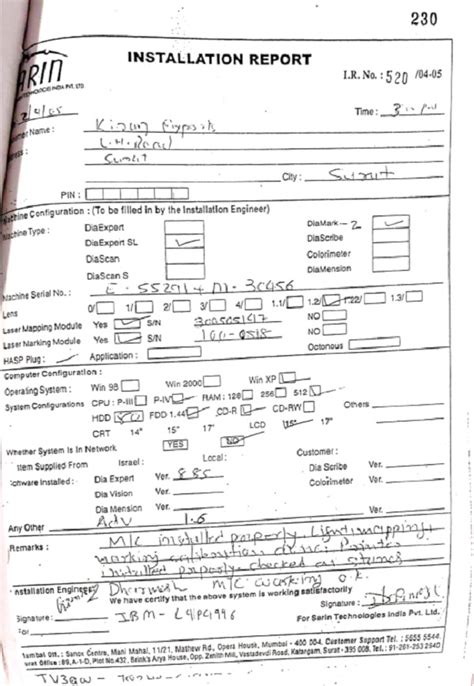 230
INSTALLATION REPORT
I.R. No. : 520 /04-05
Time : 3
Name : Kiran Exports
L.H. Road
Surat
City : Surat
PIN :
Machine Configuration : (To be filled in by the Installation Engineer)
Machine Type : DiaExpert DiaMark-2
DiaExpert SL DiaScribe
DiaScan Colorimeter
DiaScan S DiaMension
Machine Serial No. :
Lens 0/ 1/ 2/ 3/ 4/ 1.1/ 1.2/ 1.22/ 1.3/
Laser Mapping Module Yes S/N NO
Laser Marking Module Yes S/N NO
HASP Plug : Application : Octonous
Computer Configuration :
Operating System : Win 98 Win 2000 Win XP
System Configurations CPU : P-III P-IV RAM : 128 256 512 Others
HDD 80 FDD 1.44 CD-R CD-RW
CRT 14" 15" 17" LCD 15" 17"
Whether System Is In Network YES NO
System Supplied From Israel : Local : Customer :
Software Installed : Dia Expert Ver. 885 Dia Scribe Ver.
Dia Vision Ver. Colorimeter Ver.
Dia Mension Ver.
Any Other Adv 1.6
Remarks : M/C installed properly, Light mapping,
marking calibration done.
installed properly. checked
M/C working o.k.
Installation Engineer Dharmesh
We have certify that the above system is working satisfactorily
Signature : IBM- Signature :
For Sarin Technologies India Pvt. Ltd.
Mumbai Off. : Sanox Centre, Mani Mahal, 11/21, Mathew Rd., Opera House, Mumbai - 400 004. Customer Support Tel. : 5655 5544.
Surat Office : 89, A-1-D, Plot No.432, Brink's Arya House, Opp. Zenith Mill, Vastadevdi Road, Katargam, Surat - 395 008. Tel. : 91-261-253 2940